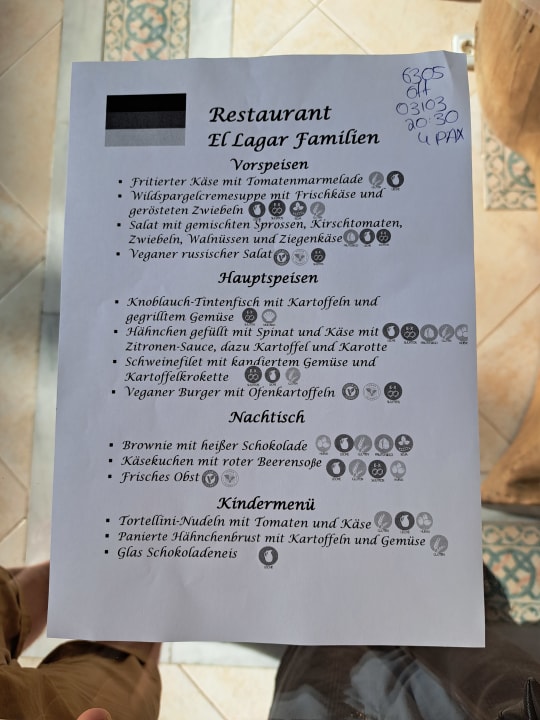 6305
03/03
20:30
4 PAX
Restaurant
El Lagar Familien
Vorspeisen
▪ Fritierter Käse mit Tomatenmarmelade
▪ Wildspargelcremesuppe mit Frischkäse und
gerösteten Zwiebeln
▪ Salat mit gemischten Sprossen, Kirschtomaten,
Zwiebeln, Walnüssen und Ziegenkäse
▪ Veganer russischer Salat
Hauptspeisen
▪ Knoblauch-Tintenfisch mit Kartoffeln und
gegrilltem Gemüse
▪ Hähnchen gefüllt mit Spinat und Käse mit
Zitronen-Sauce, dazu Kartoffel und Karotte
▪ Schweinefilet mit kandiertem Gemüse und
Kartoffelkrokette
▪ Veganer Burger mit Ofenkartoffeln
Nachtisch
▪ Brownie mit heißer Schokolade
▪ Käsekuchen mit roter Beerensoße
▪ Frisches Obst
Kindermenü
▪ Tortellini-Nudeln mit Tomaten und Käse
▪ Panierte Hähnchenbrust mit Kartoffeln und Gemüse
▪ Glas Schokoladeneis